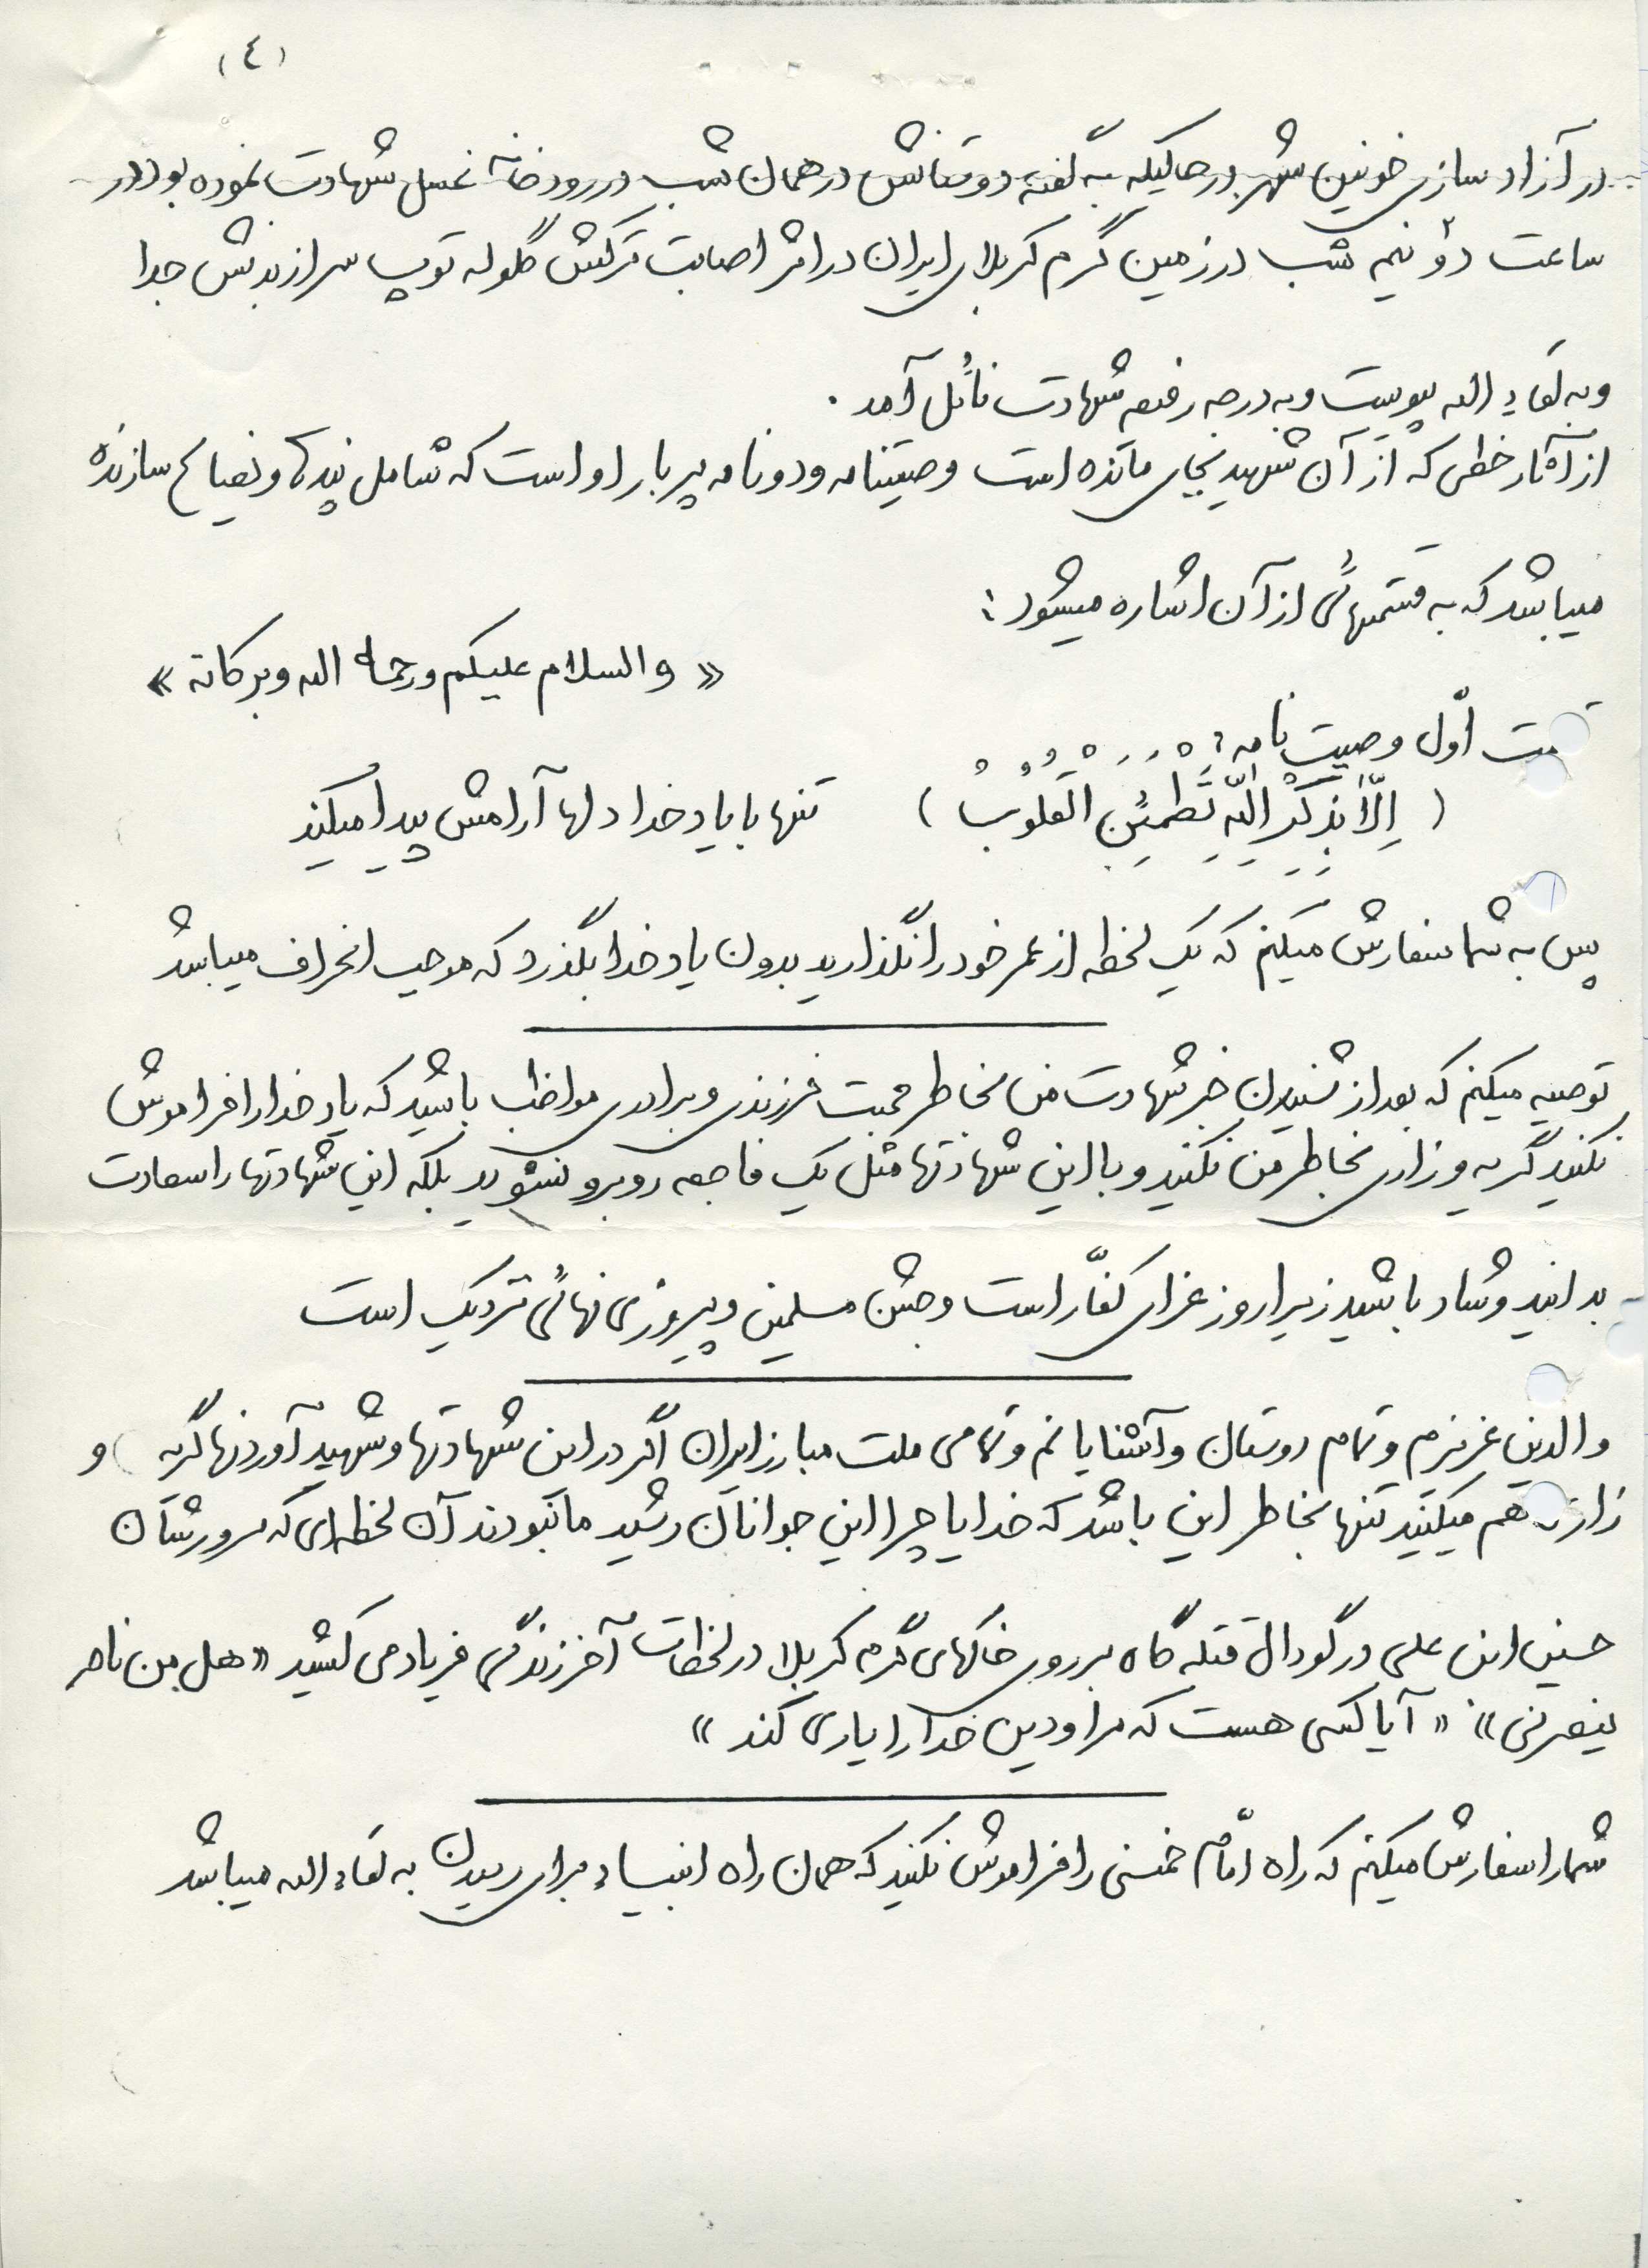 (٤)
در آزاد سازی خونین شهر در حالیکه به گفته دوستانش در همان شب در رودخانه غسل شهادت نموده بود در
ساعت دو نیم شب در زمین گرم کربلای ایران در اثر اصابت ترکش گلوله توپ سر از بدنش جدا
و به لقاء الله پیوست و به درجه رفیع شهادت نائل آمد .
از آثار خطی که از آن شهید بجای مانده است وصیتنامه و دو نامه پر بار او است که شامل پندها و نصایح سازنده
میباشد که به قسمتهائی از آن اشاره میشود :
« والسلام علیکم و رحمة الله و برکاته »
اوّل وصیت نامه :
( اِلّا بِذِکْرِ اللّهِ تَطْمَئِنُّ الْقُلُوبُ ) تنها با یاد خدا دلها آرامش پیدا میکند
پس به شما سفارش میکنم که یک لحظه از عمر خود را نگذارید بدون یاد خدا بگذرد که موجب انحراف میباشد
توصیه میکنم که بعد از شنیدن خبر شهادت من بخاطر محبت فرزندی و برادری مواظب باشید که یاد خدا را فراموش
نکنید گریه و زاری بخاطر من نکنید و با این شهادتها مثل یک فاجعه روبرو نشوید بلکه این شهادتها را سعادت
بدانید و شاد باشید زیرا روز عزای کفّار است و جشن مسلمین و پیروزی نهائی نزدیک است
والدین عزیزم و تمام دوستان و آشنایانم و تمامی ملت مبارز ایران اگر در این شهادتها و شهید آوردنها گریه و
زاری هم میکنید تنها بخاطر این باشد که خدایا چرا این جوانان رشید ما نبودند آن لحظه‌ای که سرورشان
حسین ابن علی در گودال قتله گاه بر روی خاکهای گرم کربلا در لحظات آخر زندگی فریاد می کشید « هل من ناصر
ینصرنی » « آیا کسی هست که مرا و دین خدا را یاری کند »
شما را سفارش میکنم که راه امام خمینی را فراموش نکنید که همان راه انبیاء برای رسیدن به لقاء الله میباشد